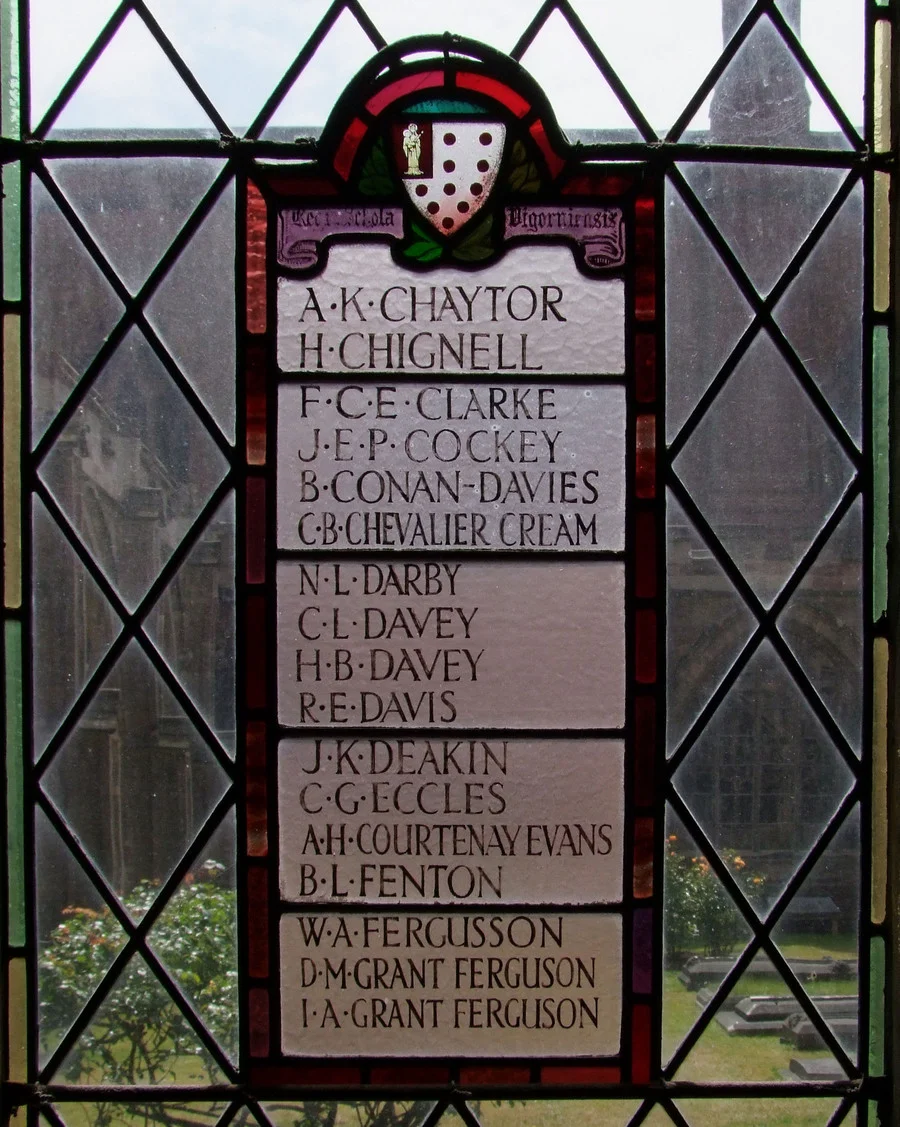 Vigorniensis
A·K·CHAYTOR
H·CHIGNELL
F·C·E·CLARKE
J·E·P·COCKEY
B·CONAN-DAVIES
C·B·CHEVALIER CREAM
N·L·DARBY
C·L·DAVEY
H·B·DAVEY
R·E·DAVIS
J·K·DEAKIN
C·G·ECCLES
A·H·COURTENAY EVANS
B·L·FENTON
W·A·FERGUSSON
D·M·GRANT FERGUSON
I·A·GRANT FERGUSON